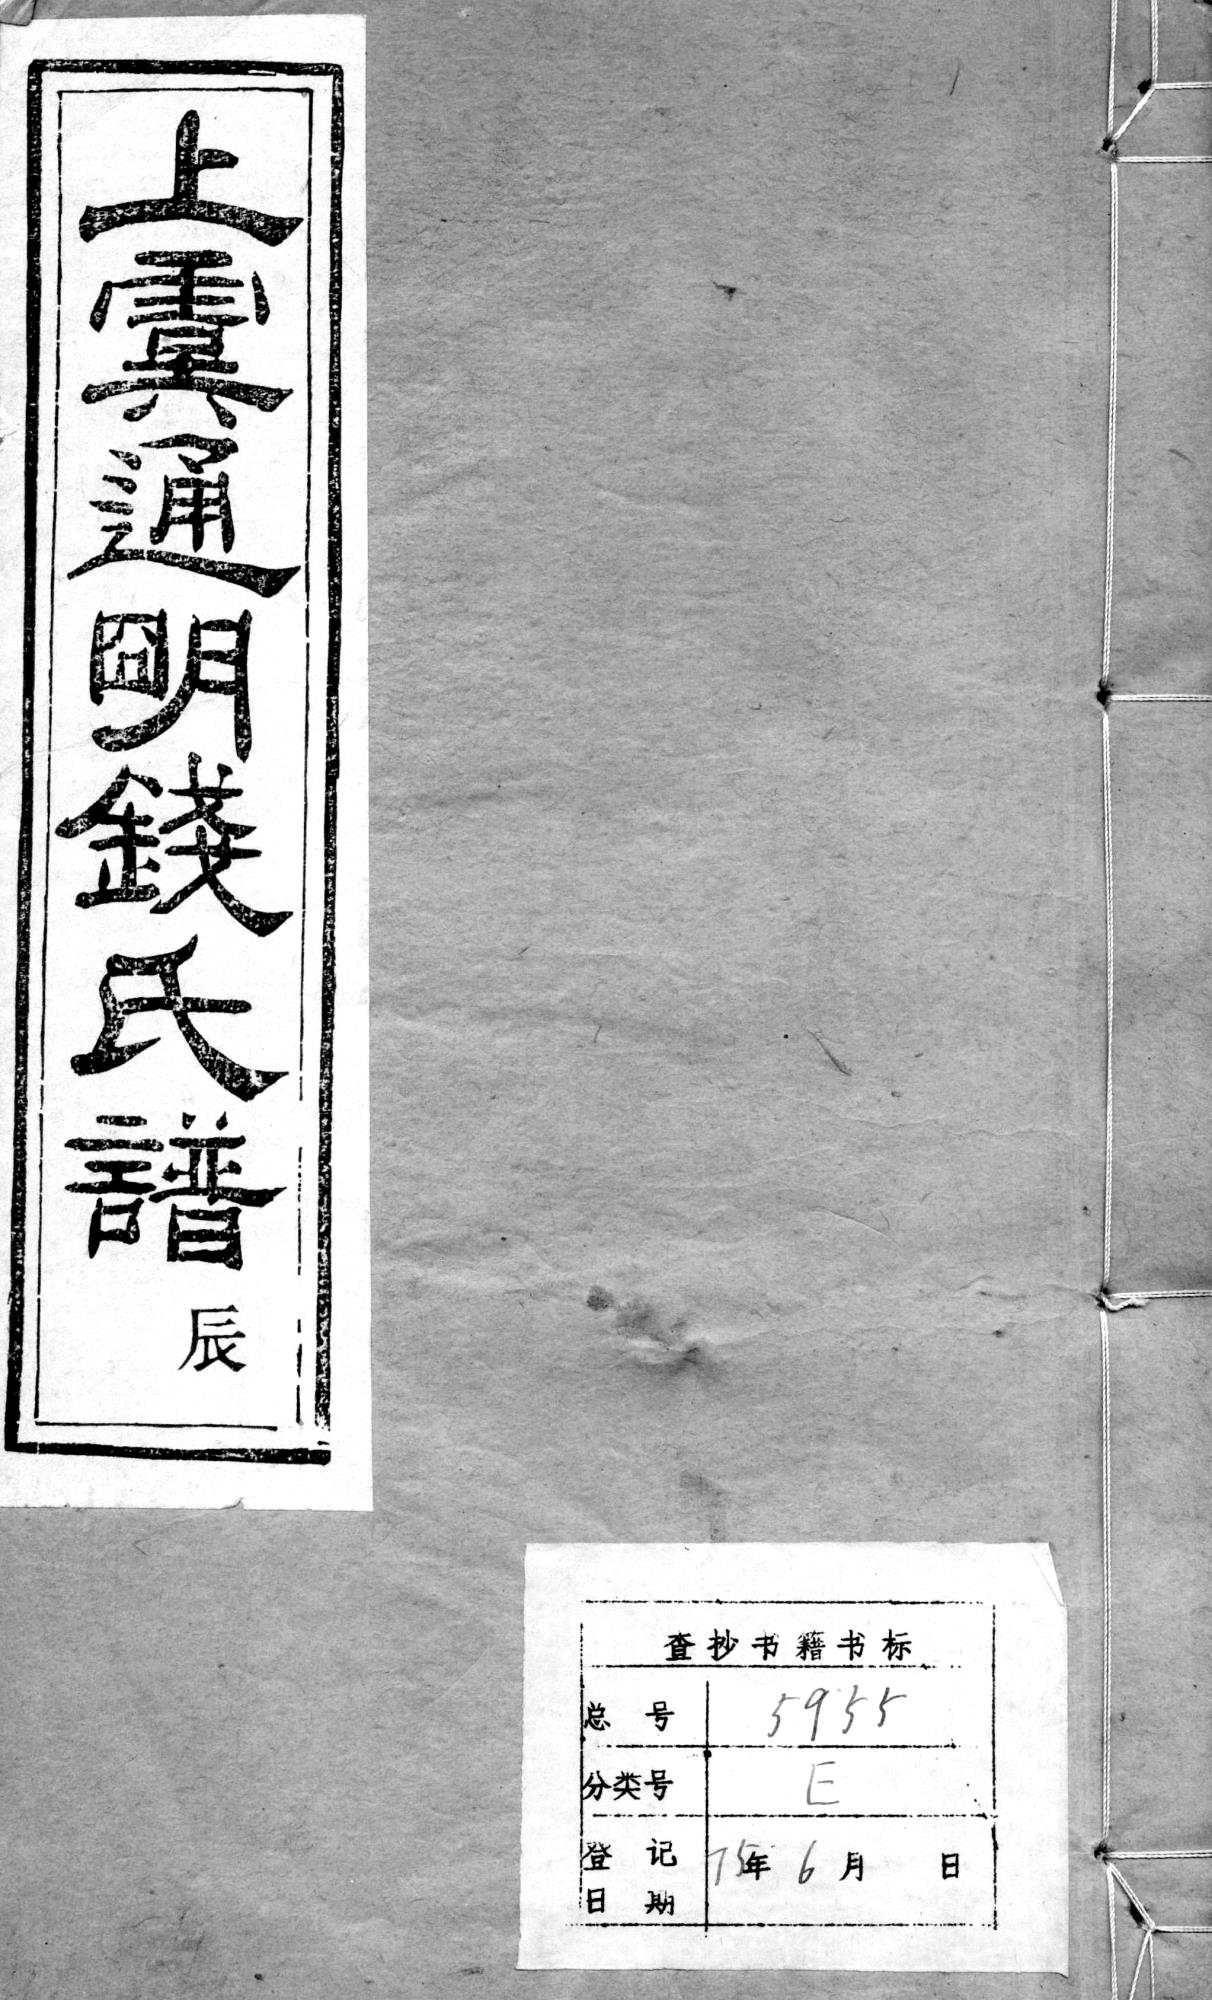 上虞通明錢氏譜
辰
查抄书籍书标
总号 5955
分类号 E
登记日期 75年6月 日